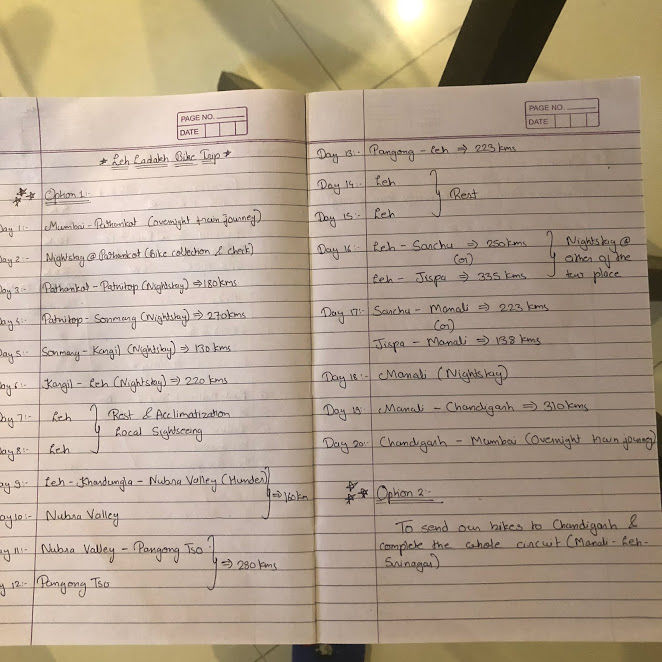 PAGE NO.
DATE
★ Leh Ladakh Bike Trip ★
Option 1:-
Day 1:- Mumbai - Pathankot (overnight train journey)
Day 2:- Nightstay @ Pathankot (Bike collection & check)
Day 3:- Pathankot - Patnitop (Nightstay) ⇒ 180 kms
Day 4:- Patnitop - Sonmarg (Nightstay) ⇒ 270 kms
Day 5:- Sonmarg - Kargil (Nightstay) ⇒ 130 kms
Day 6:- Kargil - Leh (Nightstay) ⇒ 220 kms
Day 7:- Leh } Rest & Acclimatization
Local Sightseeing
Day 8:- Leh
Day 9:- Leh - Khardungla - Nubra Valley (Hunder) } ⇒ 160 km
Day 10:- Nubra Valley
Day 11:- Nubra Valley - Pangong Tso } ⇒ 280 kms
Day 12:- Pangong Tso
PAGE NO.
DATE
Day 13:- Pangong - Leh ⇒ 223 kms
Day 14:- Leh } Rest
Day 15:- Leh
Day 16:- Leh - Sarchu ⇒ 250 kms } Nightstay @
(or) either of the
Leh - Jispa ⇒ 335 kms two place
Day 17:- Sarchu - Manali ⇒ 223 kms
(or)
Jispa - Manali ⇒ 138 kms
Day 18:- Manali (Nightstay)
Day 19:- Manali - Chandigarh ⇒ 310 kms
Day 20:- Chandigarh - Mumbai (Overnight train journey)
Option 2:-
To send our bikes to Chandigarh &
complete the whole circuit (Manali - Leh -
Srinagar)